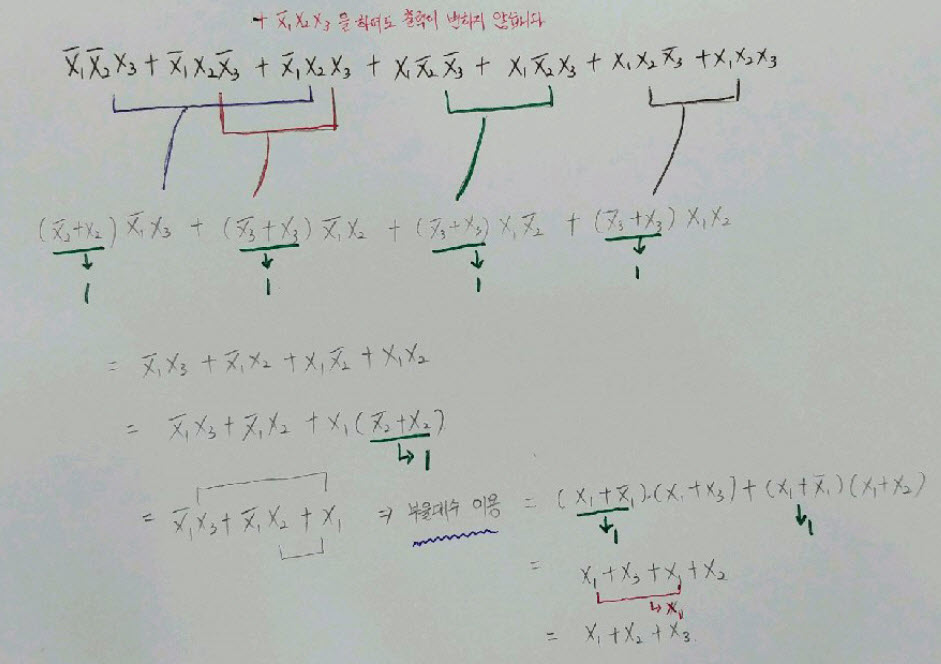 + x̄₁x₂x₃ 을 하여도 출력이 변하지 않습니다
x̄₁x̄₂x₃ + x̄₁x₂x̄₃ + x̄₁x₂x₃ + x₁x̄₂x̄₃ + x₁x̄₂x₃ + x₁x₂x̄₃ + x₁x₂x₃
(x̄₂+x₂) x̄₁x₃ + (x̄₃+x₃) x̄₁x₂ + (x̄₃+x₃) x₁x̄₂ + (x̄₃+x₃) x₁x₂
↓ ↓ ↓ ↓
1 1 1 1
= x̄₁x₃ + x̄₁x₂ + x₁x̄₂ + x₁x₂
= x̄₁x₃ + x̄₁x₂ + x₁(x̄₂+x₂)
↳ 1
= x̄₁x₃ + x̄₁x₂ + x₁ ⇒ 부울대수 이용 = (x₁+x̄₁)·(x₁+x₃) + (x₁+x̄₁)(x₁+x₂)
↓1 ↓1
= x₁+x₃+x₁+x₂
↳ x₁
= x₁+x₂+x₃